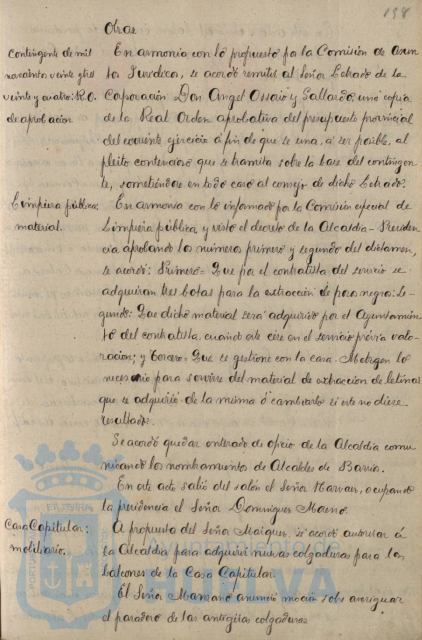 138
Otras
Contingente de mil
novecientos veinte y tres
veinte y cuatro: R.O.
de aprobacion
En armonia con lo propuesto por la Comisión de Asun
tos Juridicos, se acordó remitir al Señor Letrado de la
Corporacion Don Angel Ossorio y Gallardo, una copia
de la Real Orden aprobativa del presupuesto provincial
del corriente ejercicio á fin de que se una, á ser posible, al
pleito contencioso que se tramita sobre la base del contingen
te, sometiéndose en todo caso al consejo de dicho Letrado.
Limpieza pública:
material.
En armonia con lo informado por la Comisión especial de
Limpieza pública, y visto el decreto de la Alcaldia-Presiden
cia aprobando los números primero y segundo del dictamen,
se acordó: Primero= Que por el contratista del servicio se
adquieran tres botas para la extracción de pozo negro: Se-
gundo: Que dicho material será adquirido por el Ayuntamien
to del contratista, cuando este cese en el servicio prévia valo-
racion; y Tercero= Que se gestione con la casa Metzger lo
necesario para servirse del material de extracción de letrinas
que se adquirió de la misma ó cambiarlo si este no diese
resultado.
Se acordó quedar enterado de oficio de la Alcaldia comu
nicando los nombramientos de Alcaldes de Barrio.
En este acto salió del salón el Señor Narvaez, ocupando
la presidencia el Señor Dominguez
Casa Capitular:
mobiliario.
A propuesta del Señor se acordó autorizar á
la Alcaldia para adquirir nuevas colgaduras para los
balcones de la Casa Capitular.
El Señor Manzano anunció moción sobre averiguar
el paradero de las antiguas colgaduras
Ayuntamiento de
HUELVA